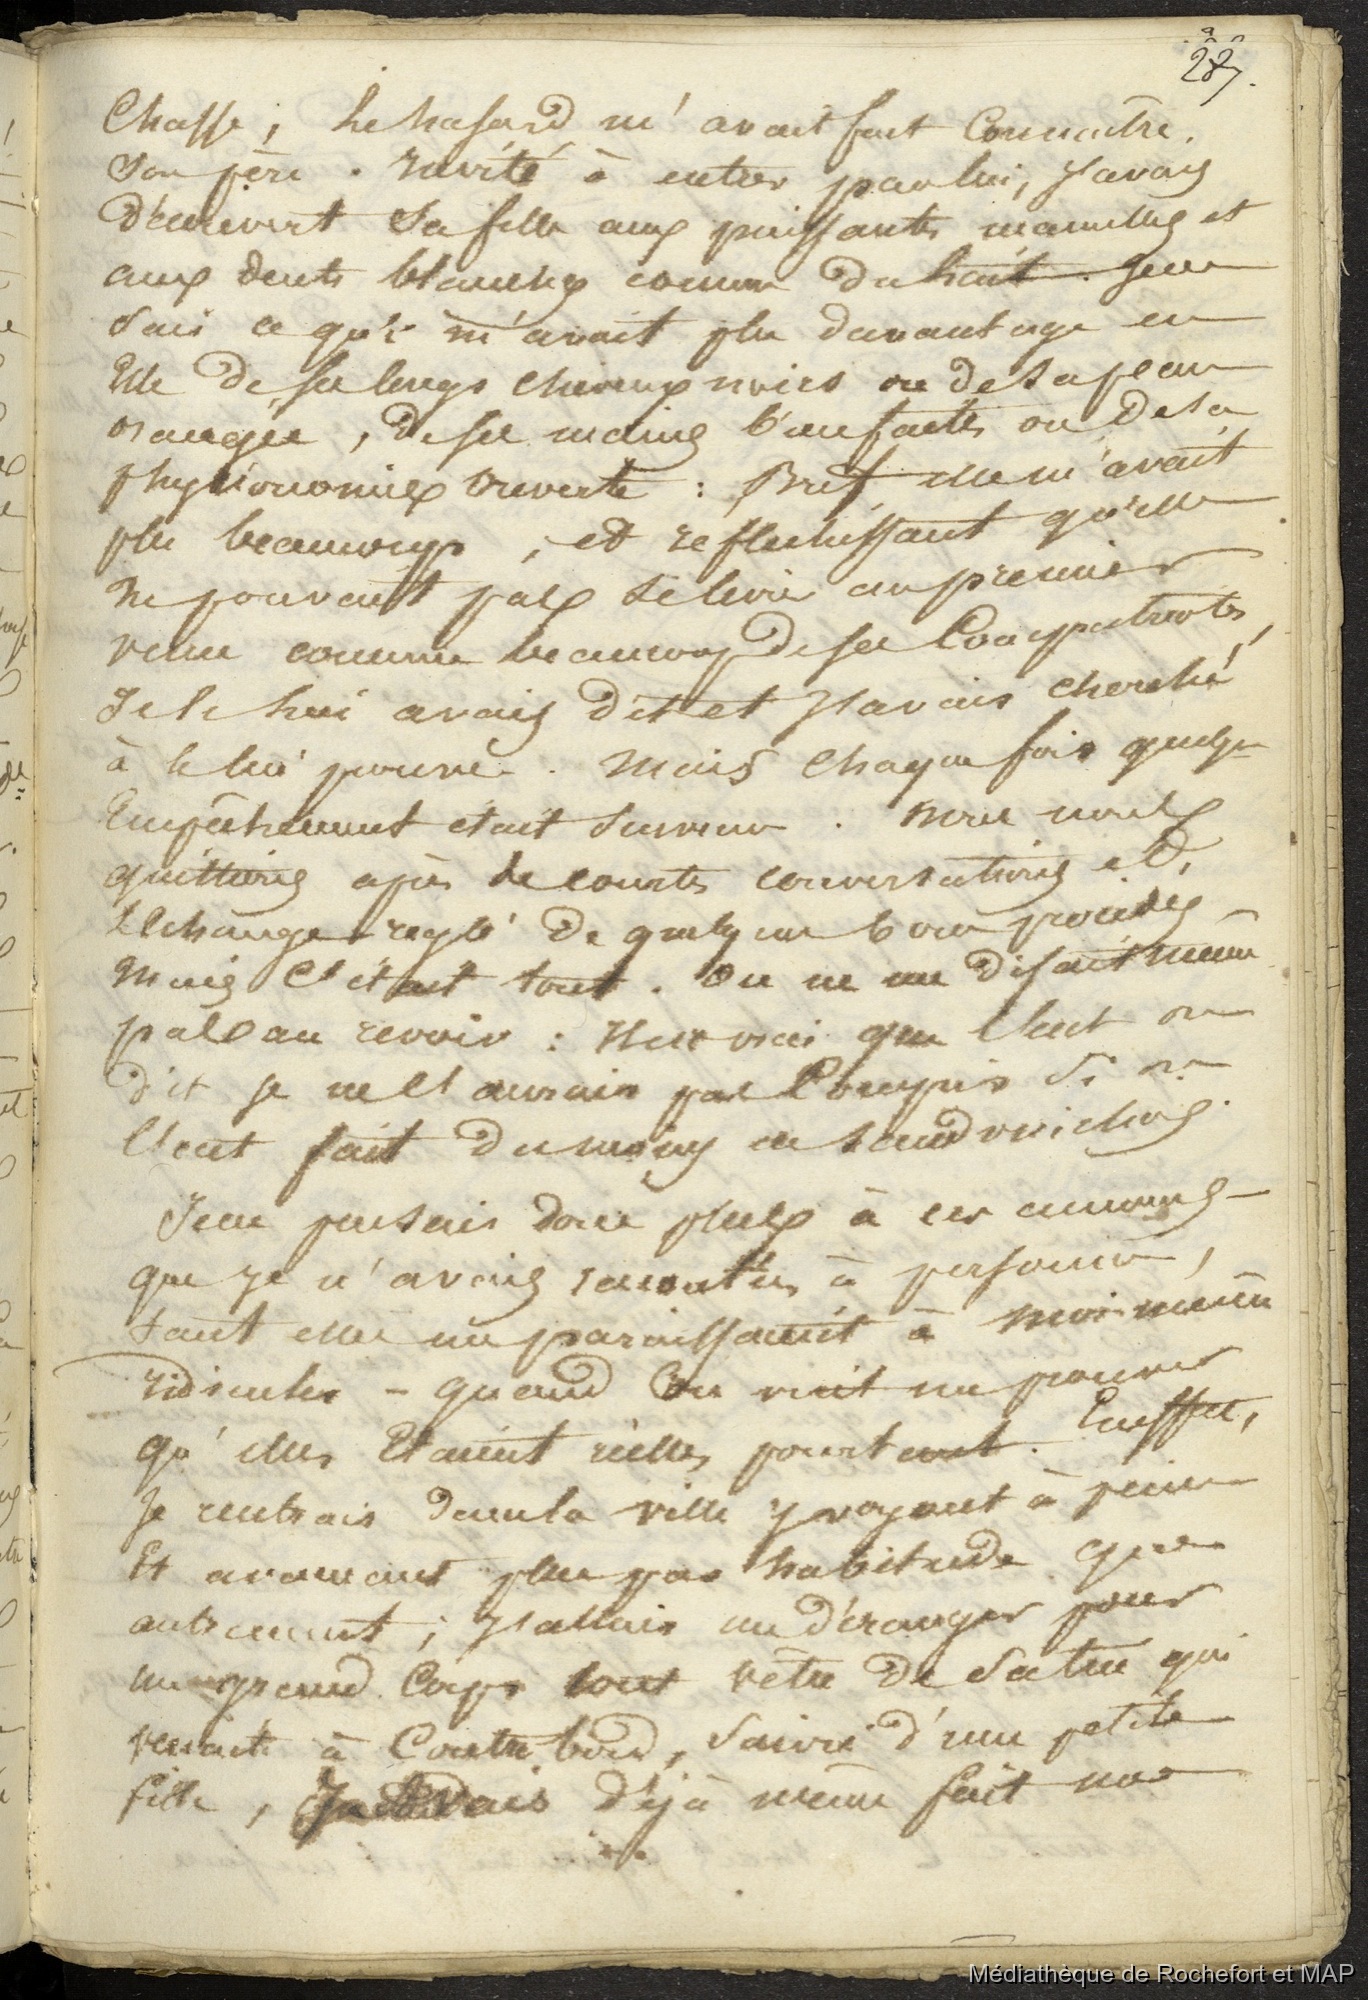 287.
Chasse ; le hasard m'avait fait Connaitre
son père . Invité à entrer par lui, j'avais
découvert sa fille aux puissantes mamelles et
aux dents blanches comme du lait . Je ne
sais ce qui m'avait plu davantage en
Elle de ses longs cheveux noirs ou de sa peau
orangée , de ses mains bien faites ou de sa
physionomie ouverte : Bref elle m'avait
plu beaucoup , et réfléchissant qu'elle
ne pouvait pas se livrer au premier
venu comme beaucoup de ses Compatriotes,
Je le lui avais dit et j'avais cherché
à le lui prouver . Mais chaque fois quelque
Empêchement était survenu . Nous nous
quittions après de courtes conversations et
l'échange réglé de quelques bons procédés
Mais C'était tout . On ne me disait même
pas au revoir : Il est vrai que l'eut on
dit je ne l'aurais pas Compris si on
l'eut fait du moins en sandwichois.
Je ne pensais donc plus à ces amours
que je n'avais racontées à personne ,
tant elles me paraissaient à moi-même
ridicules - quand On vint me prouver
qu'elles Etaient réelles pourtant . En effet,
Je rentrais dans la ville y voyant à peine
Et avançant plus par habitude que
autrement ; j'allais me déranger pour
un grand Corps tout vêtu de satin qui
venait à Contre bord, suivi d'une petite
fille , J'avais déjà même fait un
Médiathèque de Rochefort et MAP